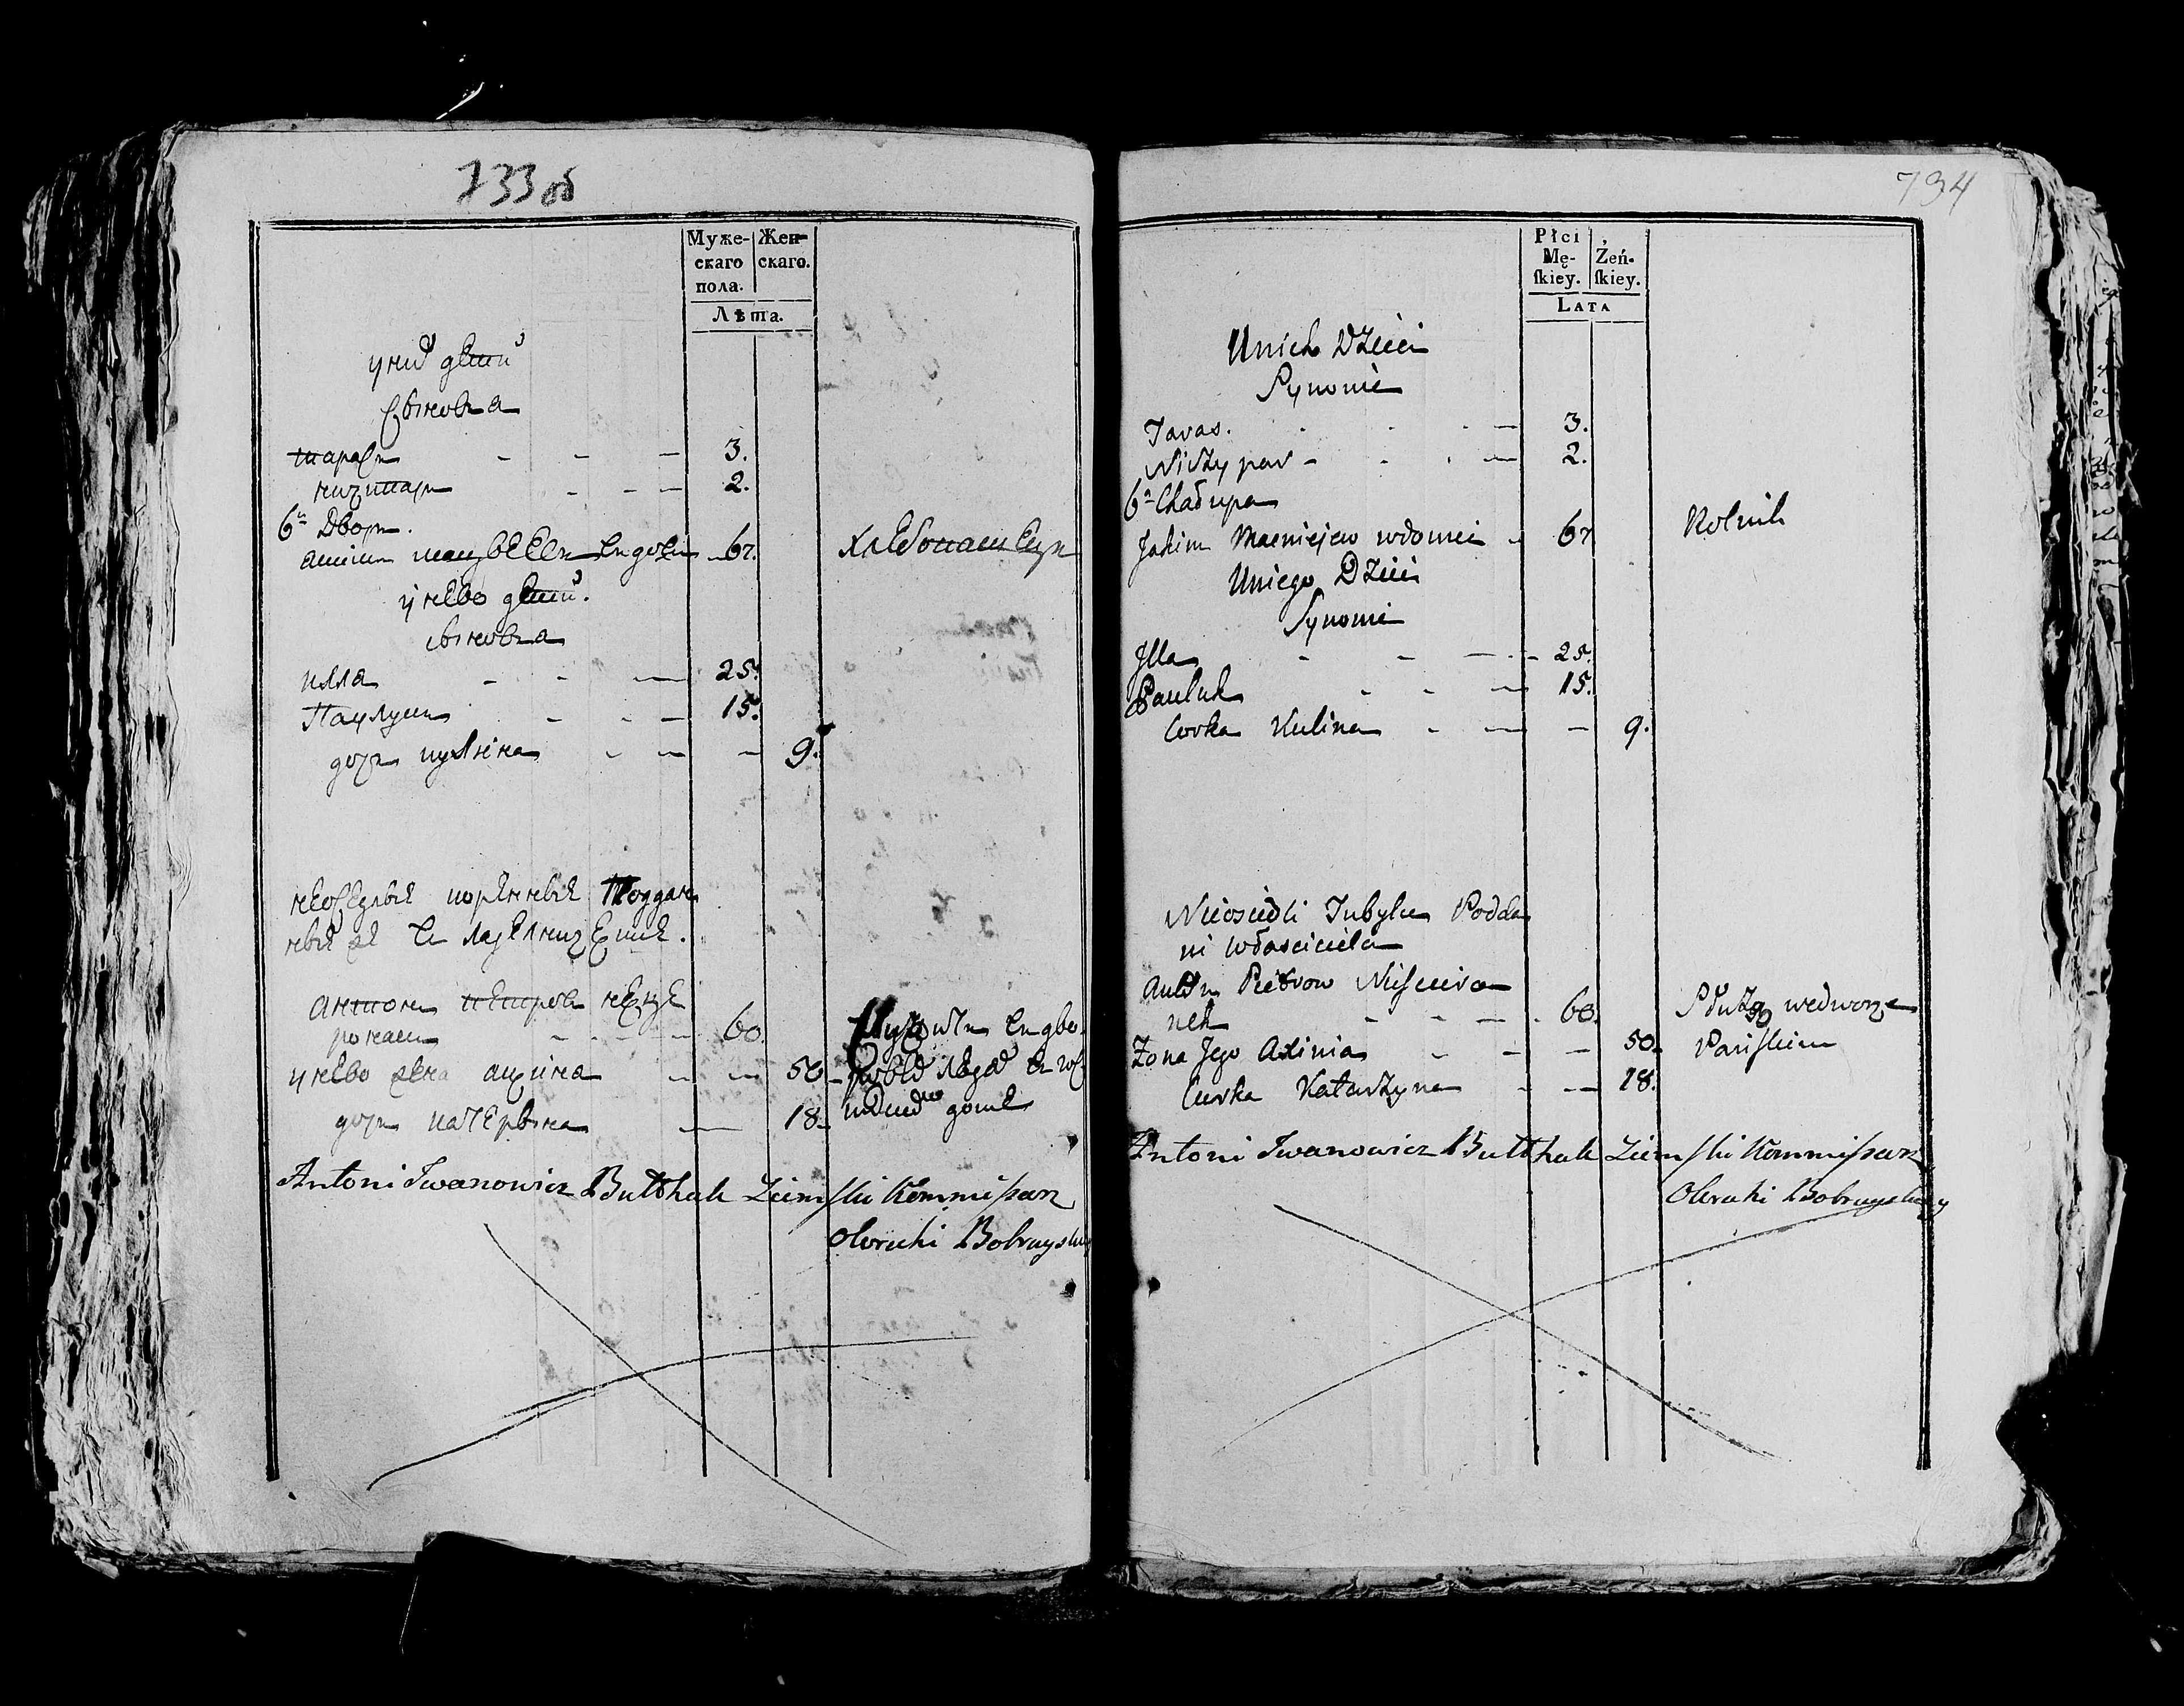 733 об
Муже-
скаго
пола.
Жен-
скаго.
Лѣта.
у нихъ дети
Сыновья
тарасъ - - - 3.
ничипаръ - - - 2.
6й Дворъ.
вдовецъ 67. хлебопашецъ
у него дети.
сыновья
илля - - - 25.
Паулукъ - - - 15.
дочь кулина - - - 9.
антонъ петровъ
60.
у него жена аксиня - - 50
дочь катерына - 18.
доме
Antoni Iwanowicz Bułhak Ziemski Kommissarz
Okruhi Bobruyskiey
734
Płci
Mę-
skiey.
Żeń-
skiey.
Lata
Unich Dzieci
Synowie
Taras. - - - 3.
Niczypar - - - 2.
6a Chałupa
Jakim Macwiejew wdowiec - 67 Rolnik
Uniego Dzieci
Synowie
Jlla - - - 25.
Pauluk - - - 15.
Corka Kulina - - - 9.
Nieosiedli Tubylcy Podda
ni własciciela
Pietrow
60. Służą wedworze
Zona Jego Axinia - - - 50. Panskim
Curka Katarzyna - - 18.
Antoni Iwanowicz Bułhak Ziemski Kommissarz
Okruhi Bobruyskiey